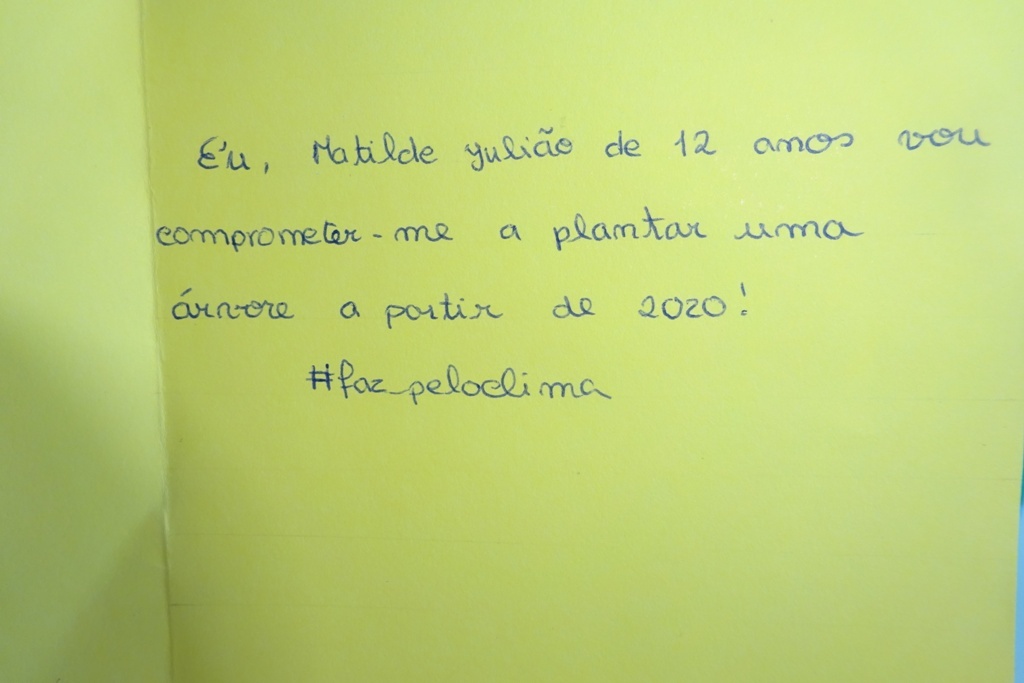 Eu, Matilde Julião de 12 anos vou
comprometer-me a plantar uma
árvore a partir de 2020!
#faz_peloclima